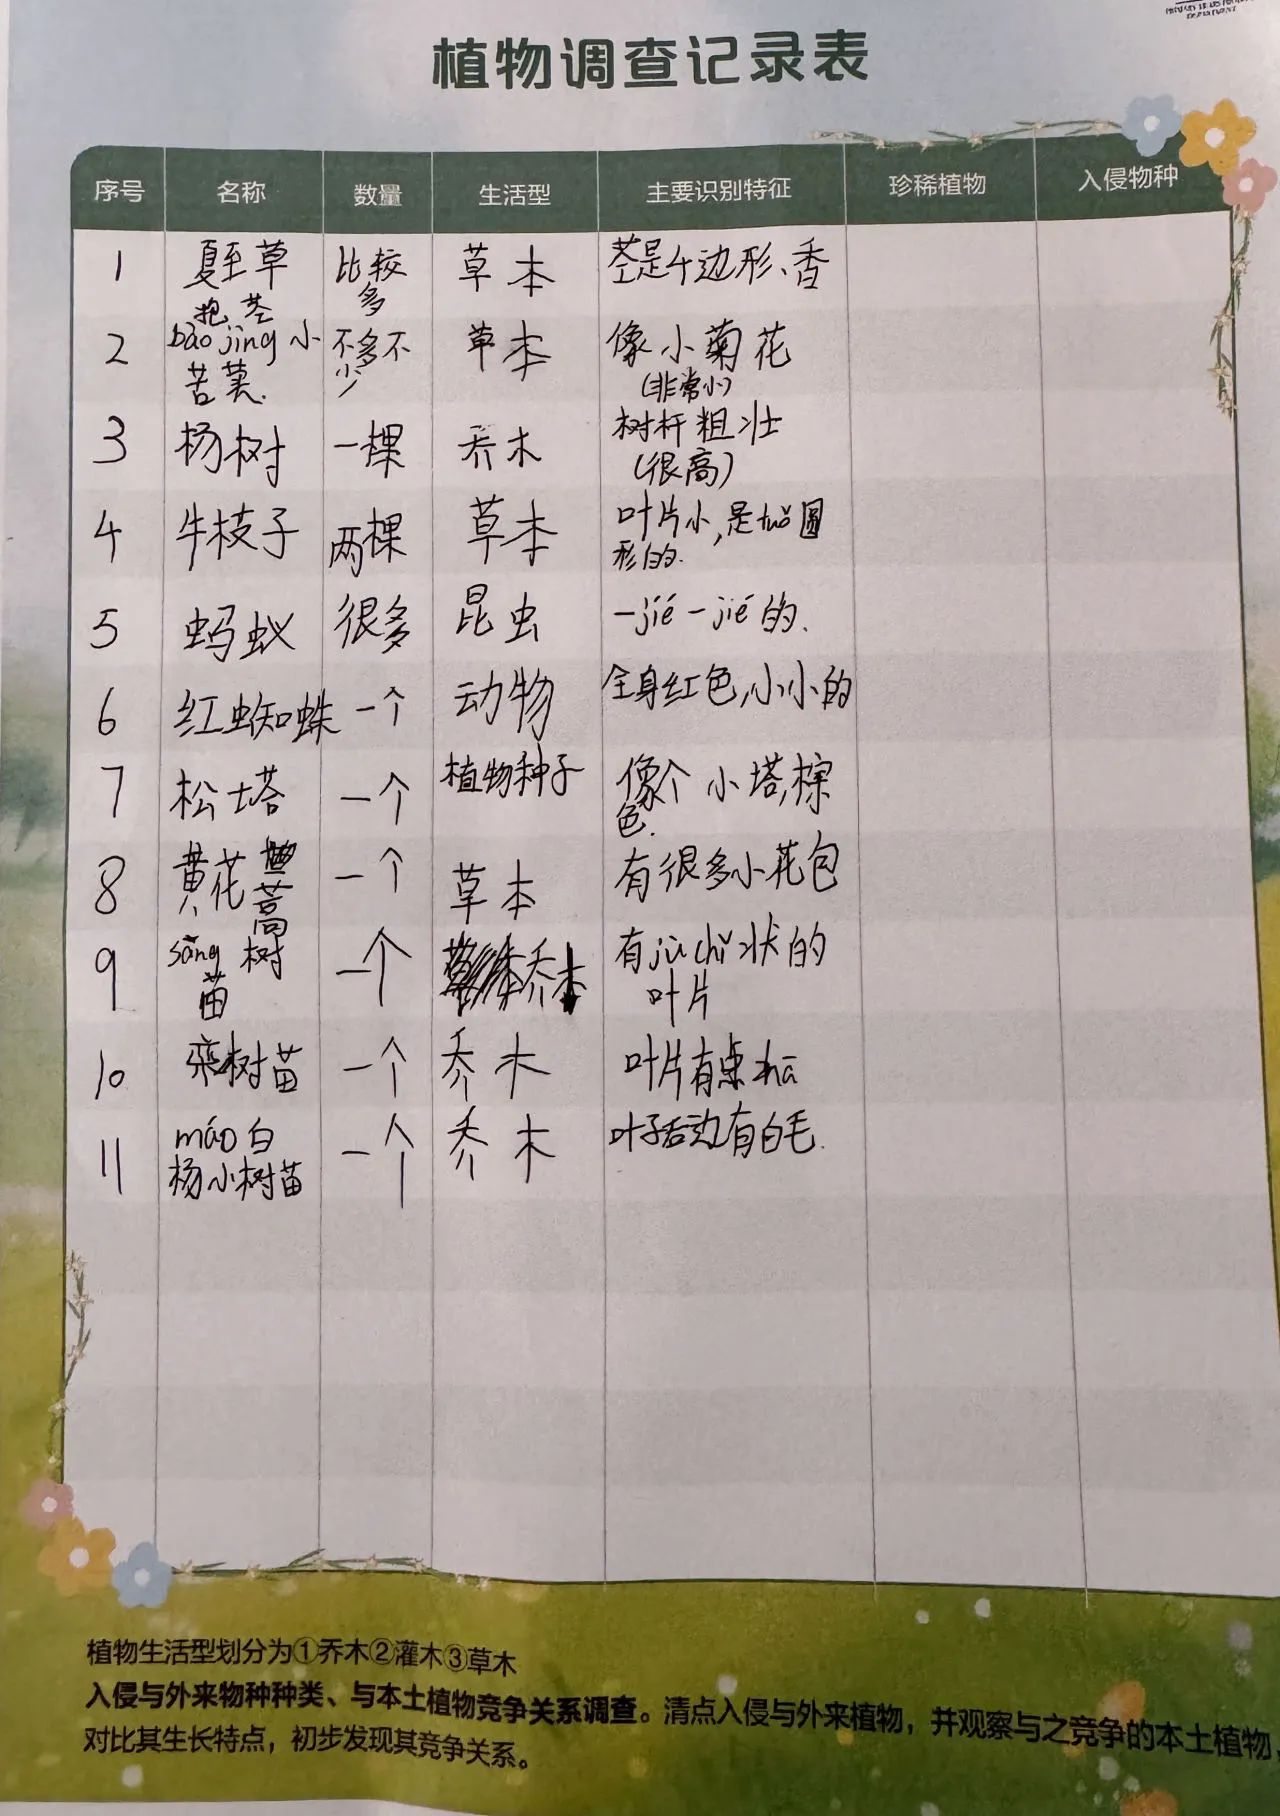 植物调查记录表
序号 名称 数量 生活型 主要识别特征 珍稀植物 入侵物种
1 夏至草 比较多 草本 茎是4边形、香
2 抱茎 bào jīng 小苦荬. 不多不少 草本 像小菊花(非常小)
3 杨树 一棵 乔木 树杆粗壮(很高)
4 牛枝子 两棵 草本 叶片小,是tuǒ圆形的.
5 蚂蚁 很多 昆虫 一jié一jié的.
6 红蜘蛛 一个 动物 全身红色,小小的
7 松塔 一个 植物种子 像个小塔,棕色.
8 黄花蒿 一个 草本 有很多小花包
9 sāng树苗 一个 乔本 有jù chǐ状的叶片
10 栾树苗 一个 乔木 叶片有
11 máo白杨小树苗 一个 乔木 叶子后边有白毛.
植物生活型划分为①乔木②灌木③草木
入侵与外来物种种类、与本土植物竞争关系调查。清点入侵与外来植物，并观察与之竞争的本土植物，
对比其生长特点，初步发现其竞争关系。